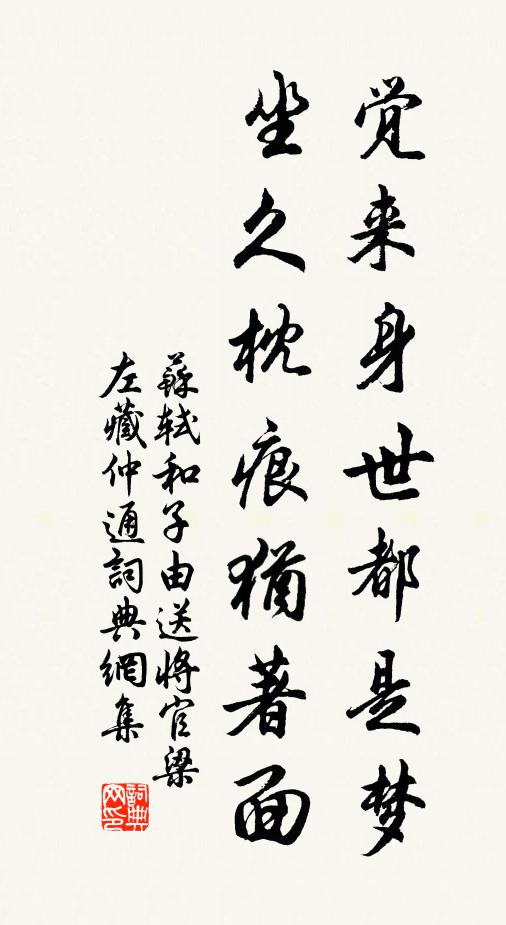 觉来身世都是梦
坐久枕痕犹著面
蘇轼和子由送將官梁
左藏仲通詞典網集
詞典
网印